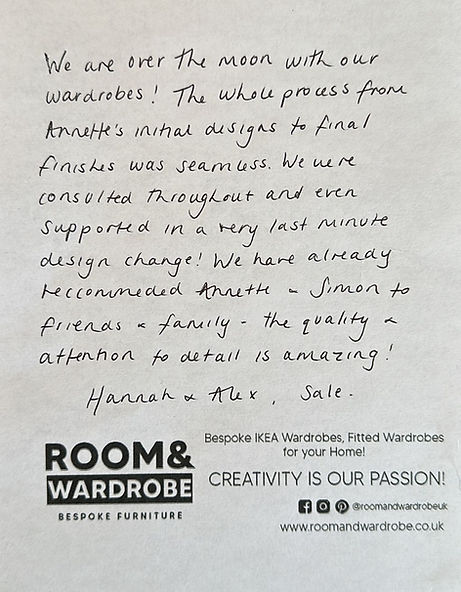 We are over the moon with our
wardrobes! The whole process from
Annette's initial designs to final
finishes was seamless. We were
consulted throughout and even
supported in a very last minute
design change! We have already
reccommeded Annette & Simon to
friends & family - the quality &
attention to detail is amazing!
Hannah & Alex, Sale.
ROOM&
WARDROBE
BESPOKE FURNITURE
Bespoke IKEA Wardrobes, Fitted Wardrobes
for your Home!
CREATIVITY IS OUR PASSION!
@roomandwardrobeuk
www.roomandwardrobe.co.uk